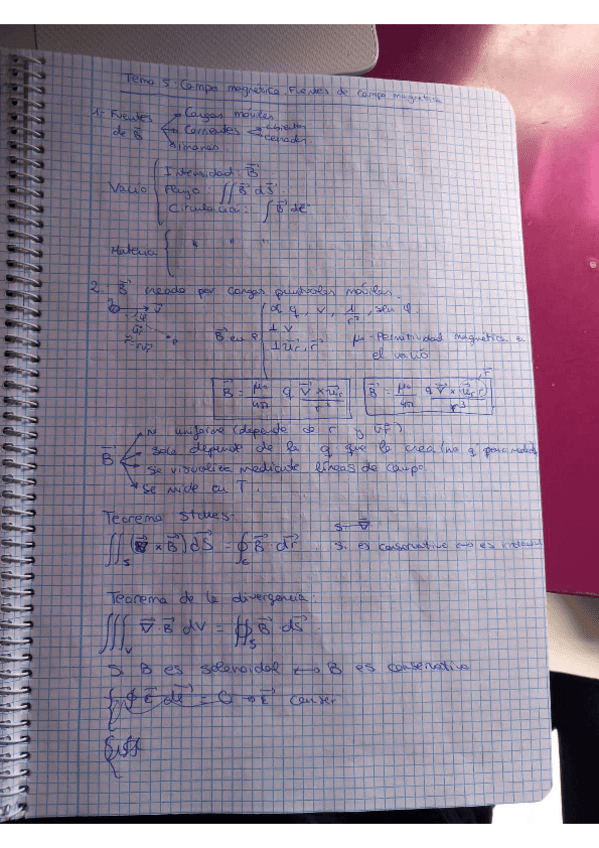 Tema 5: Campo magnético. Fuentes de campo magnético
1. Fuentes de B⃗ → Cargas móviles
→ Corrientes → abiertas
→ cerradas
→ imanes
Vacío { Intensidad: B⃗
Flujo ∬ B⃗ dS⃗
Circulación: ∫ B⃗ dℓ⃗
Materia { " " "
2. B⃗ creado por cargas puntuales móviles.
B⃗ en P { α q, v, 1/r², sen φ.
⊥ v
⊥ u⃗r, r⃗
μ₀ - Permitividad magnética en el vacío
B⃗ = μ₀/4π q v⃗ × u⃗r / r²
B⃗ = μ₀/4π q v⃗ × r⃗ / r³
B⃗ → no uniforme (depende de r y u⃗r)
→ Solo depende de la q que la crea (no q'
→ Se visualiza mediante líneas de campo
→ Se mide en T.
Teorema Stokes.
∬_S (∇⃗ × B⃗) dS⃗ = ∮_C B⃗ dr⃗. Si es conservativo ↔ es
Teorema de la divergencia:
∭_V ∇⃗ B⃗ dV = ∯_S B⃗ dS⃗
Si B es solenoidal ↔ B es conservativo
∮ E⃗ dℓ⃗ = 0 → E⃗ conser